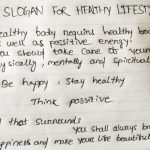 SLOGAN FOR HEALTHY LIFESTY
ealthy body requires healthy bod
well as positive energy.
ou should take care of your
ysically, mentally and Spiritual
Be happy, Stay healthy
Think possitive
d that Surrounds
you shall always br
ppiness and make your life beautiful